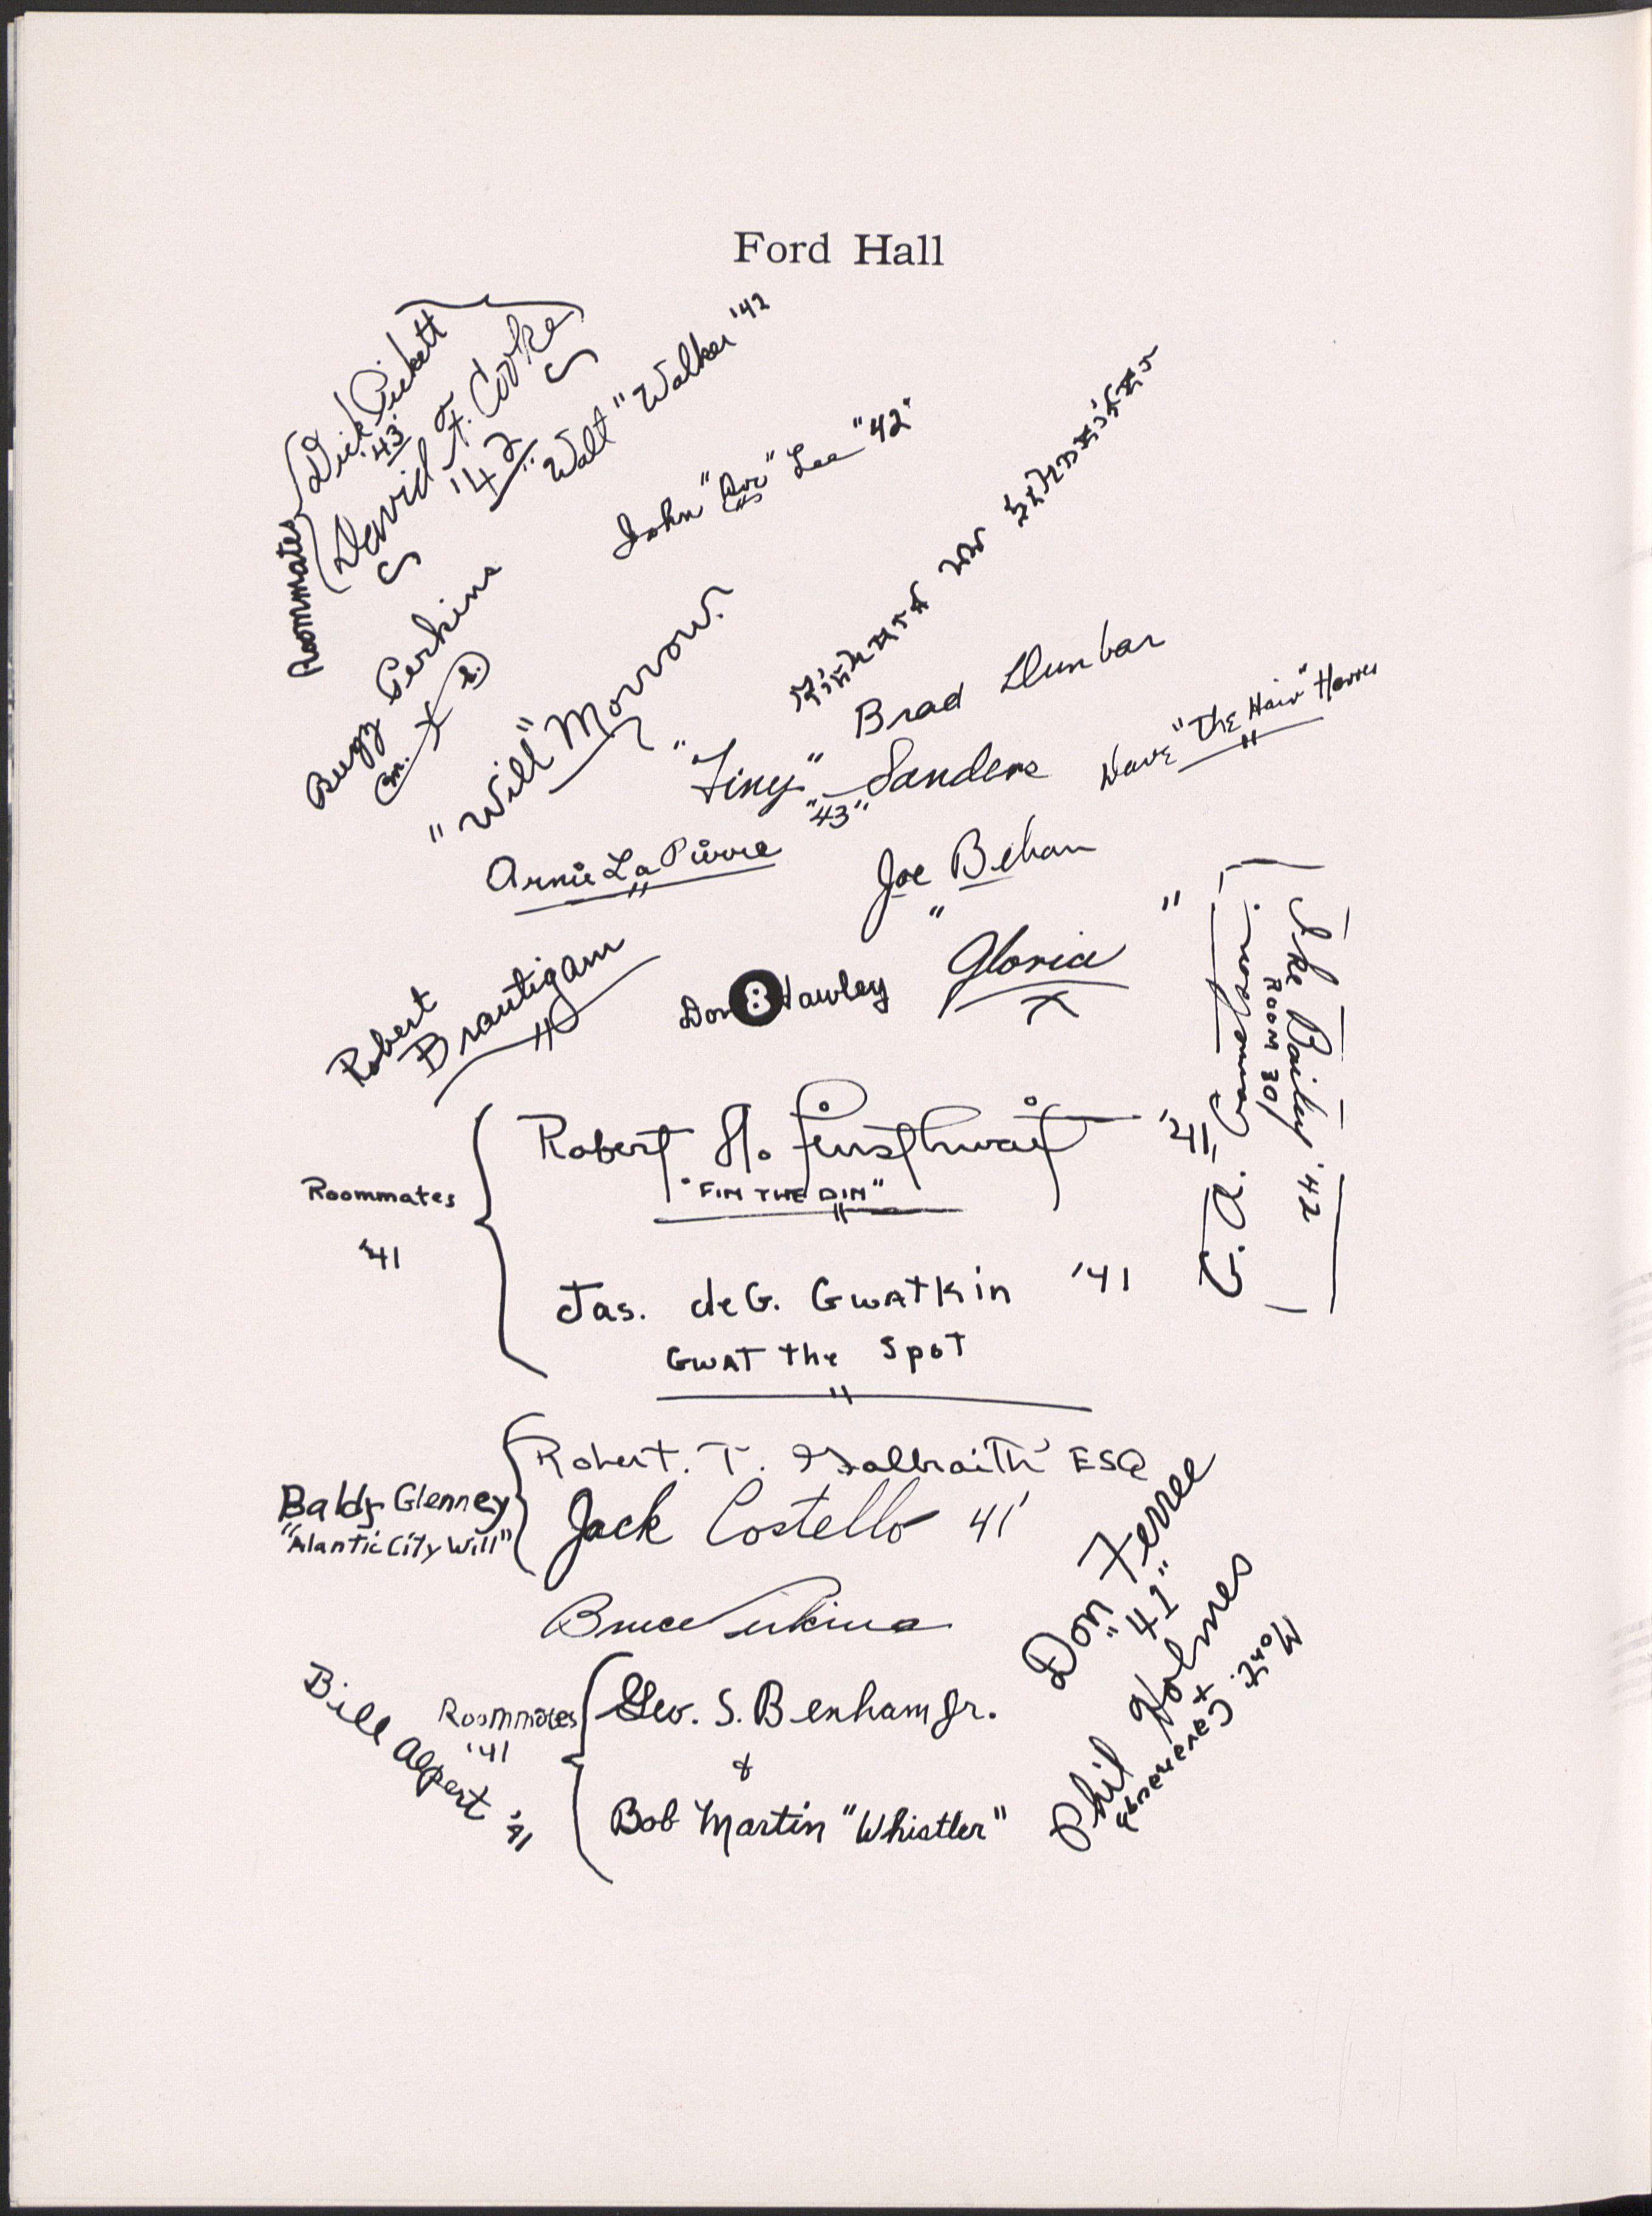 Ford Hall
Roommates
Dick Pickett
'43'
David F. Cooke
'42
"Walt" Walker '42
John "Doc" Lee "42"
Bugz Perkins
"Will" Morrow
Brad Dunbar
"Tiny" Sanders
"43"
Dave "The Hair"
Arnie La Pierre
Joe Behan
"Gloria"
Robert
Brautigam
Don 8 Hawley
Ike Bailey '42
ROOM 301
G. A.
Roommates
'41
Robert H. '41
"FIN THE DIN"
Jas. deG. Gwatkin '41
Gwat the Spot
Baldy Glenney
"Alantic City Will"
Robert. T. Galbraith ESQ
Jack Costello 41'
Bruce Perkins
Don Ferree
"41"
Phil Holmes
Bill Alpert '41
Roommates
'41
Geo. S. Benham Jr.
&
Bob Martin "Whistler"